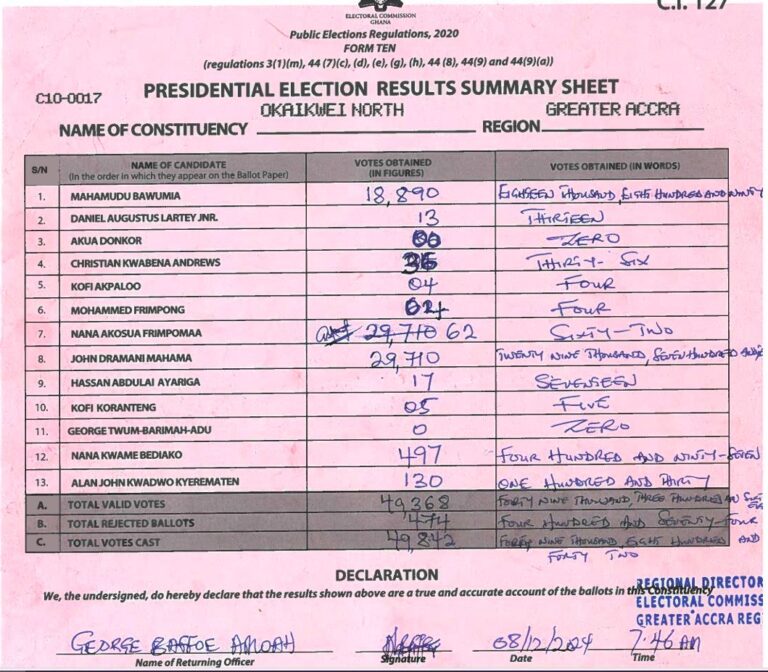 C.I. 127
ELECTORAL COMMISSION
GHANA
Public Elections Regulations, 2020
FORM TEN
(regulations 3(1)(m), 44 (7)(c), (d), (e), (g), (h), 44 (8), 44(9) and 44(9)(a))
PRESIDENTIAL ELECTION RESULTS SUMMARY SHEET
C10-0017 OKAIKWEI NORTH GREATER ACCRA
NAME OF CONSTITUENCY REGION
S/N NAME OF CANDIDATE (In the order in which they appear on the Ballot Paper) VOTES OBTAINED (IN FIGURES) VOTES OBTAINED (IN WORDS)
1. MAHAMUDU BAWUMIA 18,890 EIGHTEEN THOUSAND, EIGHT HUNDRED AND NINTY
2. DANIEL AUGUSTUS LARTEY JNR. 13 THIRTEEN
3. AKUA DONKOR 00 ZERO
4. CHRISTIAN KWABENA ANDREWS 36 THIRTY-SIX
5. KOFI AKPALOO 04 FOUR
6. MOHAMMED FRIMPONG 04 FOUR
7. NANA AKOSUA FRIMPOMAA 29,710 62 SIXTY-TWO
8. JOHN DRAMANI MAHAMA 29,710 TWENTY NINE THOUSAND, SEVEN HUNDRED AND
9. HASSAN ABDULAI AYARIGA 17 SEVENTEEN
10. KOFI KORANTENG 05 FIVE
11. GEORGE TWUM-BARIMAH-ADU 0 ZERO
12. NANA KWAME BEDIAKO 497 FOUR HUNDRED AND NINTY-SEVEN
13. ALAN JOHN KWADWO KYEREMATEN 130 ONE HUNDRED AND THIRTY
A. TOTAL VALID VOTES 49,368 FORTY NINE THOUSAND, THREE HUNDRED AN
B. TOTAL REJECTED BALLOTS 474 FOUR HUNDRED AND SEVENTY-FOUR
C. TOTAL VOTES CAST 49,842 FORTY NINE THOUSAND, EIGHT HUNDRED AND
FORTY TWO
DECLARATION
We, the undersigned, do hereby declare that the results shown above are a true and accurate account of the ballots in this Constituency
REGIONAL DIRECTOR
ELECTORAL COMMISS
GREATER ACCRA REG
GEORGE BAFFOE AMOAH 08/12/2024 7:46 AM
Name of Returning Officer Signature Date Time